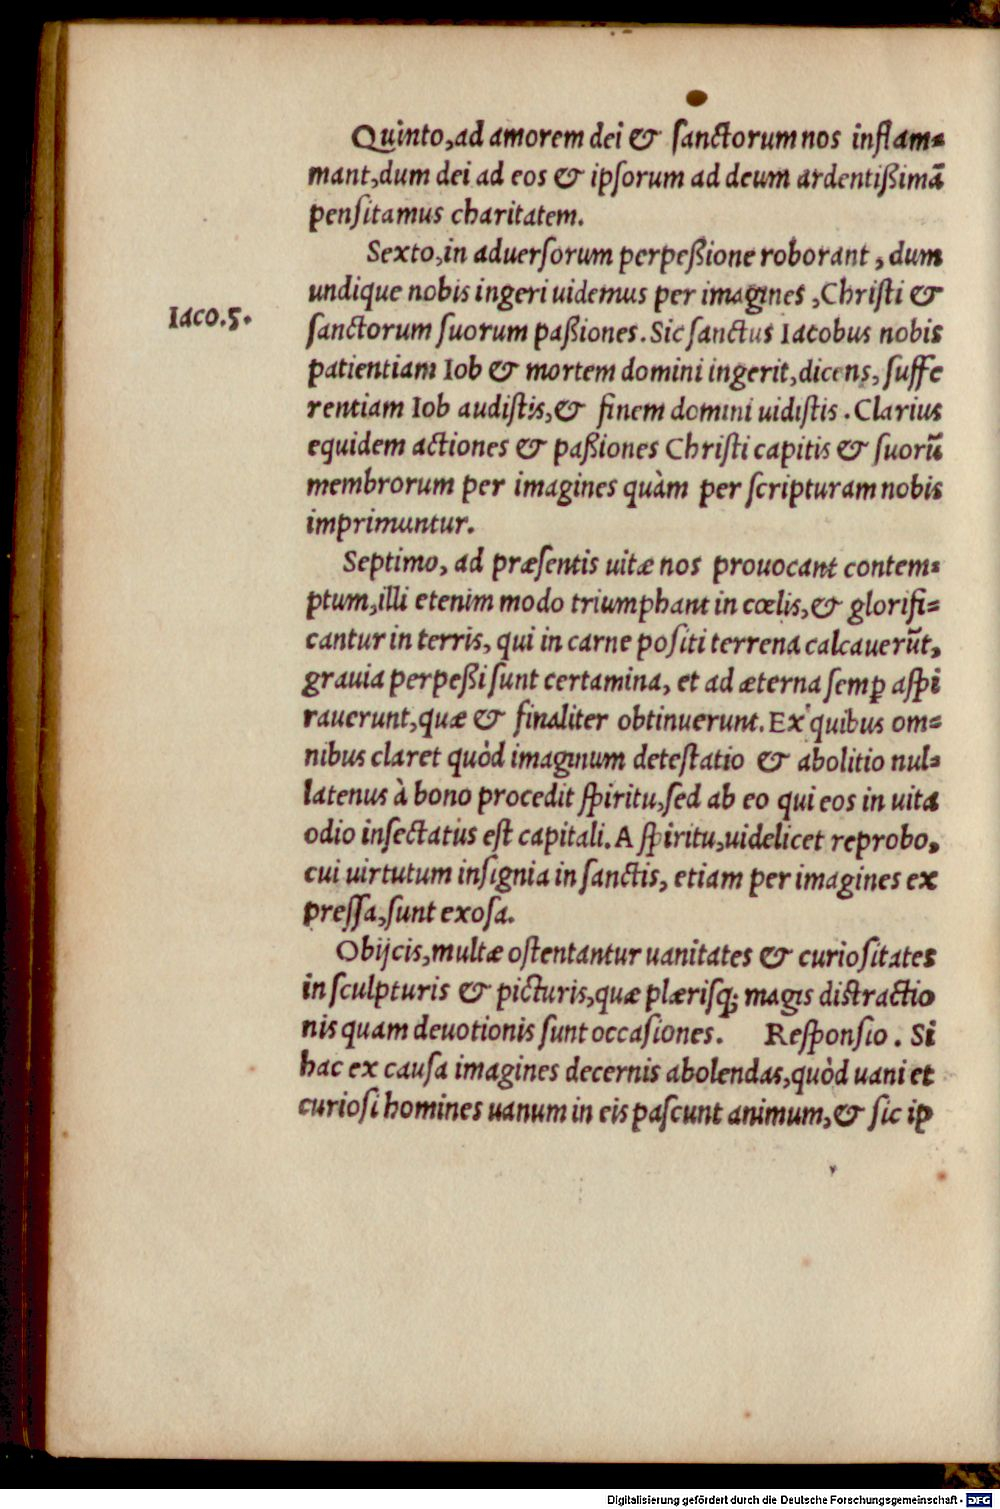 Quinto, ad amorem dei & sanctorum nos inflam=
mant, dum dei ad eos & ipsorum ad deum ardentißimā
pensitamus charitatem.
Sexto, in aduersorum perpeßione roborant, dum
undique nobis ingeri uidemus per imagines, Christi &
Iaco.5.
sanctorum suorum paßiones. Sic sanctus Iacobus nobis
patientiam Iob & mortem domini ingerit, dicens, suffe
rentiam Iob audistis, & finem domini uidistis. Clarius
equidem actiones & paßiones Christi capitis & suorū
membrorum per imagines quàm per scripturam nobis
imprimuntur.
Septimo, ad præsentis uitæ nos prouocant contem=
ptum, illi etenim modo triumphant in cœlis, & glorifi=
cantur in terris, qui in carne positi terrena calcauerūt,
grauia perpeßi sunt certamina, et ad æterna semꝑ aspi
rauerunt, quæ & finaliter obtinuerunt. Ex quibus om=
nibus claret quòd imaginum detestatio & abolitio nul=
latenus à bono procedit spiritu, sed ab eo qui eos in uita
odio insectatus est capitali. A spiritu, uidelicet reprobo,
cui uirtutum insignia in sanctis, etiam per imagines ex
pressa, sunt exosa.
Obijcis, multæ ostentantur uanitates & curiositates
in sculpturis & picturis, quæ plærisq; magis distractio
nis quam deuotionis sunt occasiones. Responsio. Si
hac ex causa imagines decernis abolendas, quòd uani et
curiosi homines uanum in eis pascunt animum, & sic ip
Digitalisierung gefördert durch die Deutsche Forschungsgemeinschaft - DFG